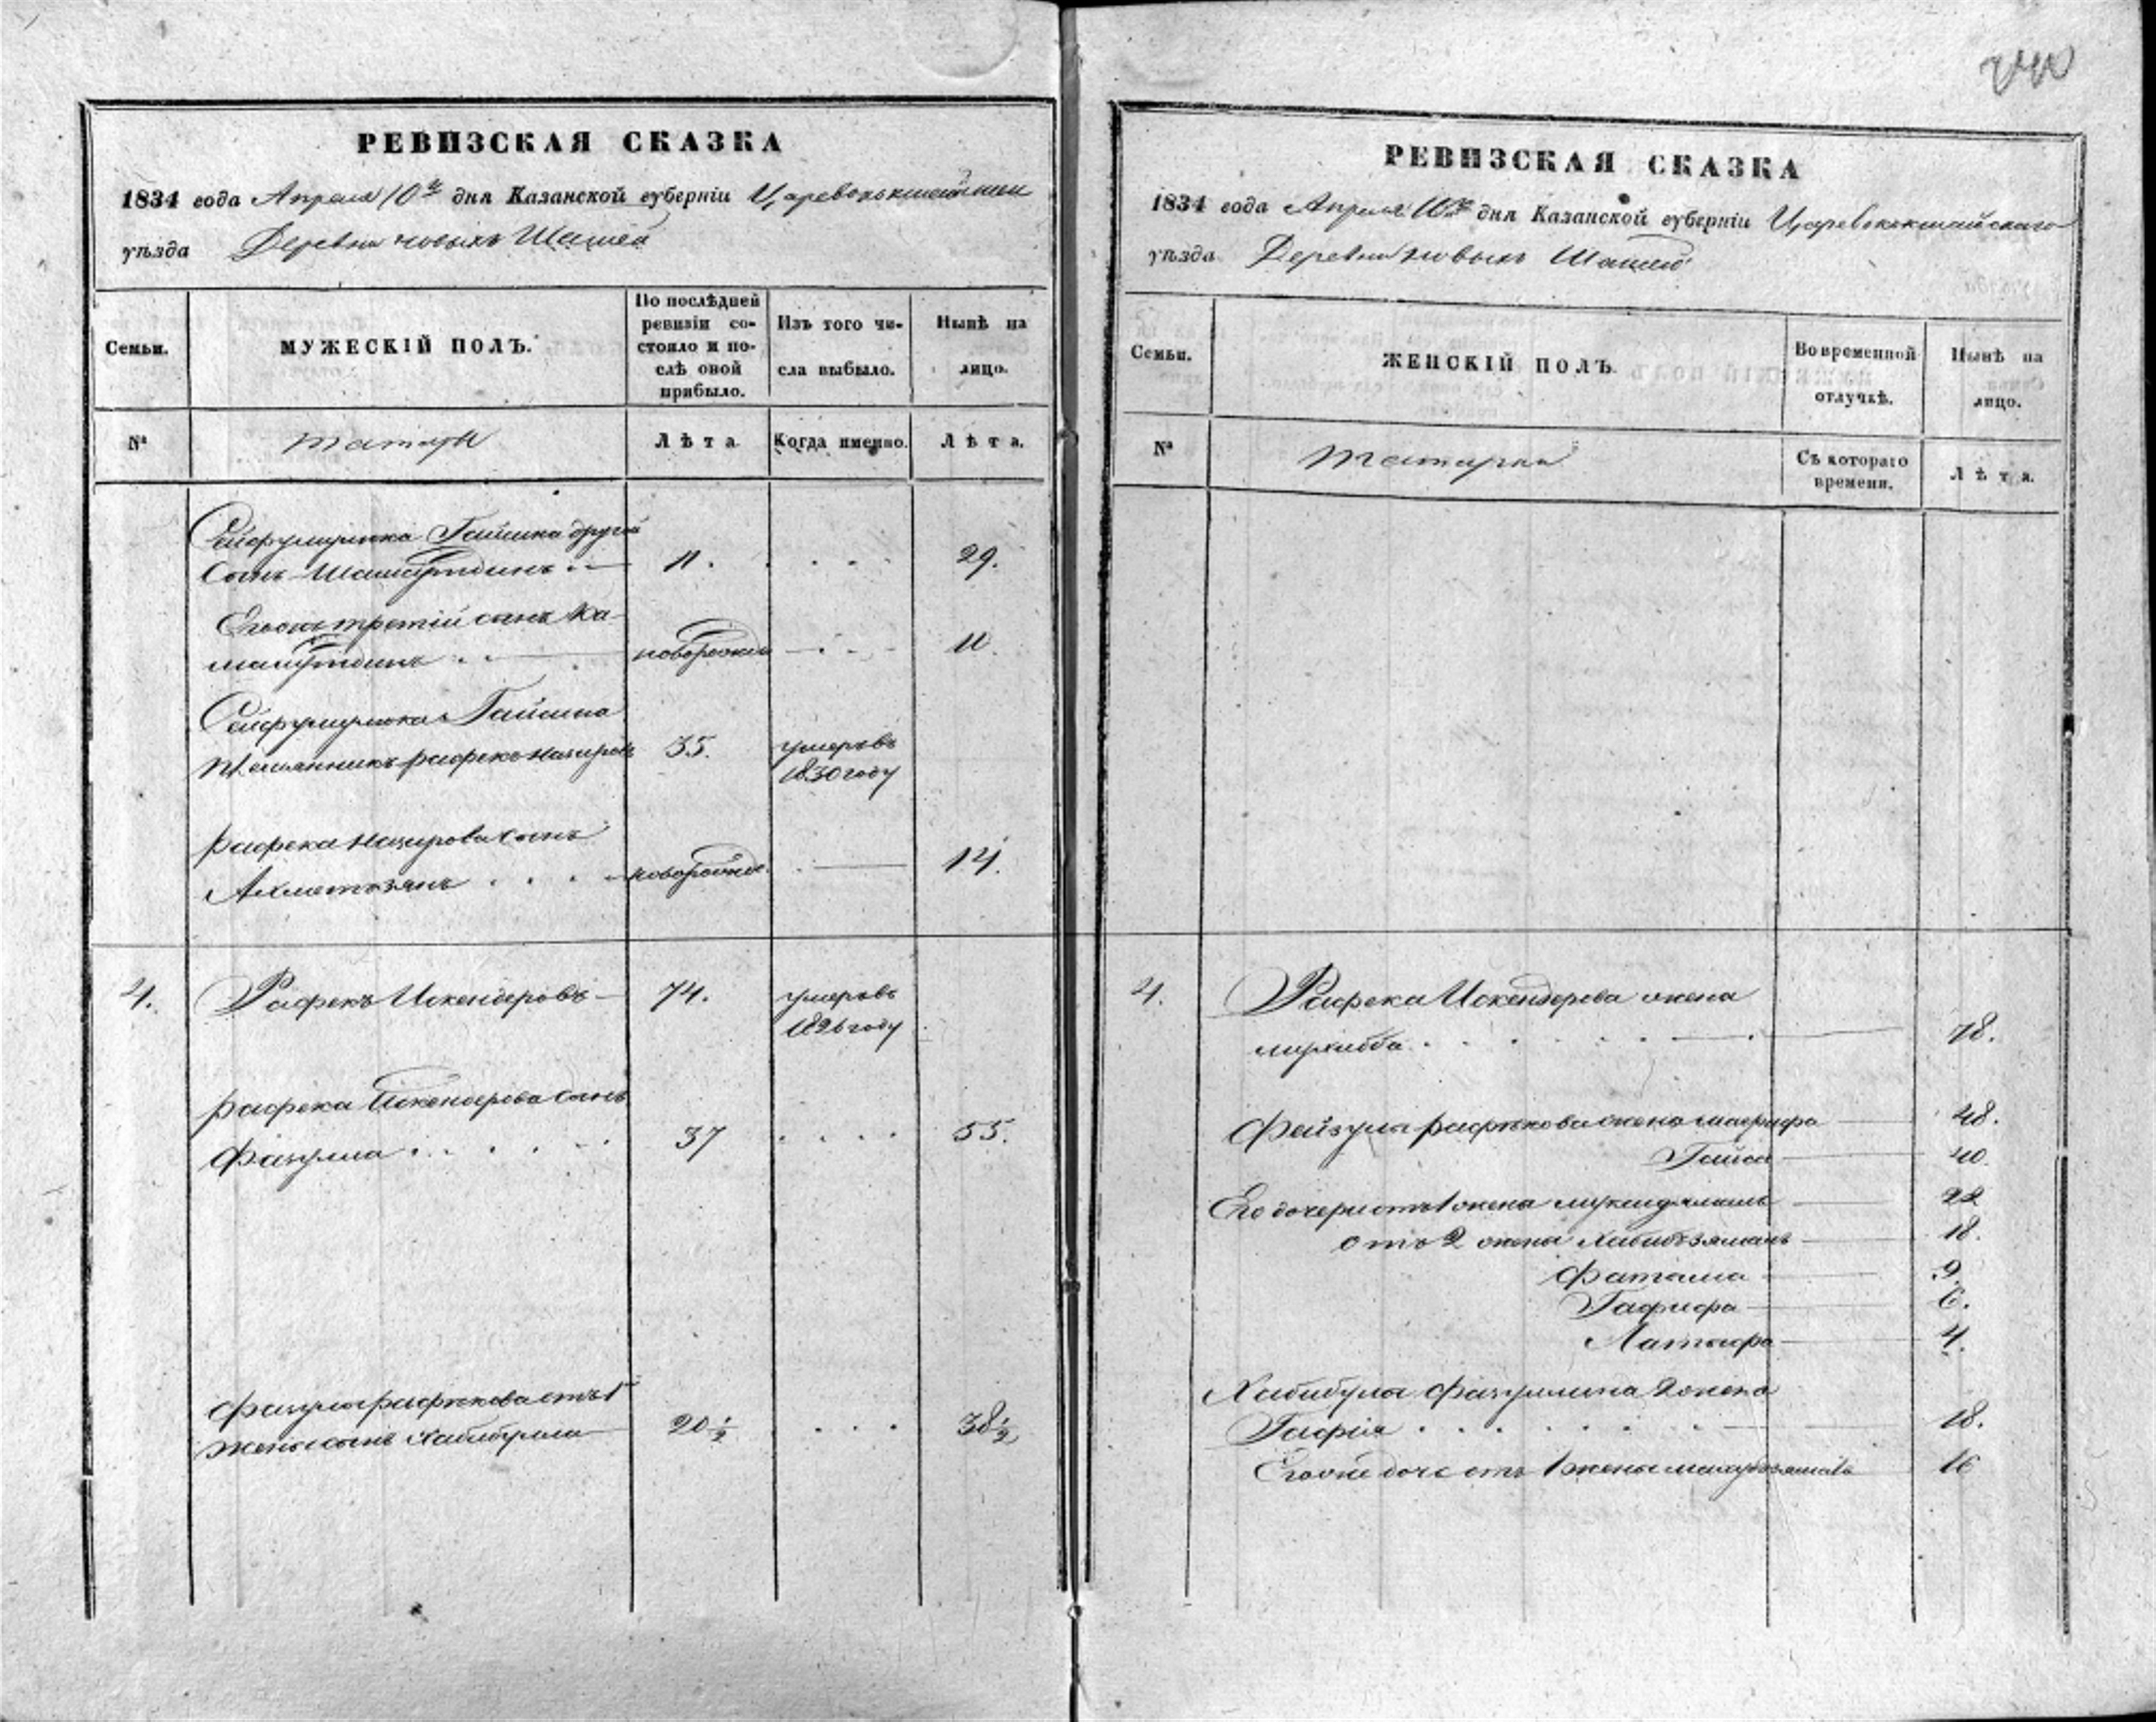 РЕВИЗСКАЯ СКАЗКА
1834 года Апреля 10го дня Казанской губерніи
уѣзда Деревни новыхъ
Семьи.
МУЖЕСКІЙ ПОЛЪ.
По послѣдней
ревизіи со-
стояло и по-
слѣ оной
прибыло.
Изъ того чи-
сла выбыло.
Нынѣ на
лицо.
№
татары
Лѣта
Когда именно.
Лѣта.
Гайсина другой
сынъ 11. 29.
третій сынъ Ка-
новорожден 11.
Гайсина
племянникъ рафекъ назировъ 35. умеръ въ
1830 году
рафека назирова сынъ
Ахметзянъ новорожде 14.
4. Рафекъ Искендеровъ 74. умеръ въ
1826 году
рафека Искендерова сынъ
Фазулла 37 55.
Фазулы рафикова отъ 1
жены сынъ Хабибулла 20 1/2 38 1/2
РЕВИЗСКАЯ СКАЗКА
1834 года Апреля 10го дня Казанской губерніи Царевококшайскаго
уѣзда Деревни новыхъ
Семьи.
ЖЕНСКІЙ ПОЛЪ.
Во временной
отлучкѣ.
Нынѣ на
лицо.
№
татарки
Съ котораго
времени.
Лѣта.
4. Рафека Искендерова жена
78.
Фейзулы рафикова жена 48.
Гайса 40.
Его дочери отъ 1 жены 22
отъ 2 жены Хабибзямалъ 18.
Фатыма 9.
Гафифа 6.
Латыфа 4.
Хабибулы Фазуллина 2 жена
Гафія 18.
Его же дочь отъ 1 жены 16